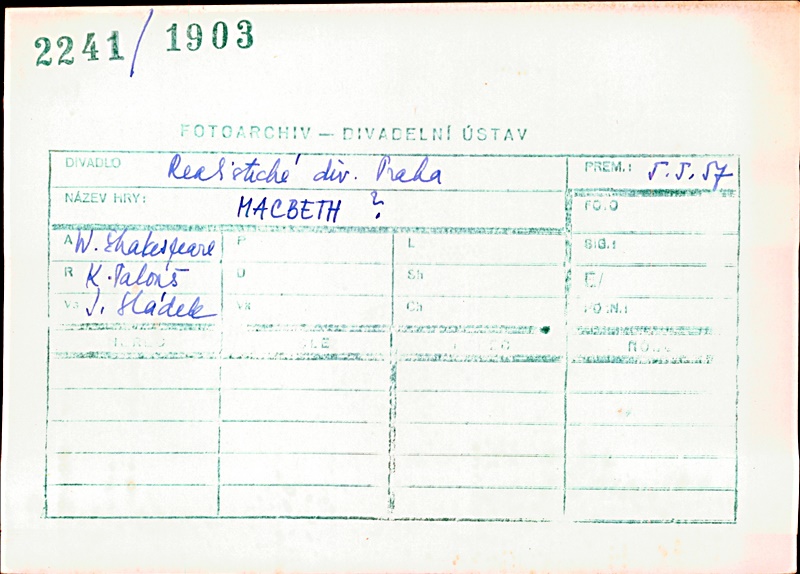 2241/1903
FOTOARCHIV — DIVADELNÍ ÚSTAV
DIVADLO Realistické div. Praha PREM.: 5.5.57
NÁZEV HRY: MACBETH ? FOTO
A W. Shakespeare P L SIG.:
R K. Palouš D Sh E/
Vs J. Sládek Vk Ch POZN.:
HEREC